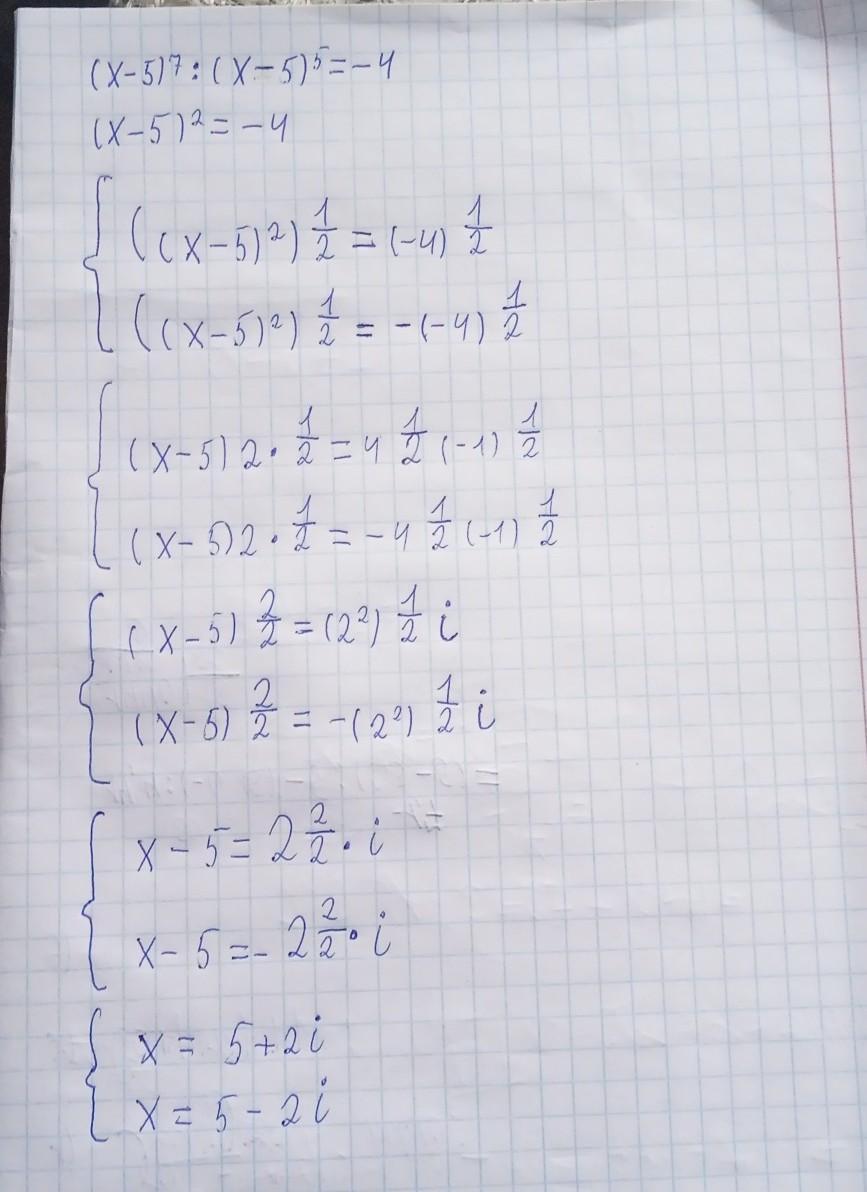 (x-5)⁷:(x-5)⁵=-4
(x-5)²=-4
((x-5)²)^1/2=(-4)^1/2
((x-5)²)^1/2=-(-4)^1/2
(x-5)2·1/2=4^1/2(-1)^1/2
(x-5)2·1/2=-4^1/2(-1)^1/2
(x-5)^2/2=(2²)^1/2 i
(x-5)^2/2=-(2²)^1/2 i
x-5=2^2/2·i
x-5=-2^2/2·i
x=5+2i
x=5-2i